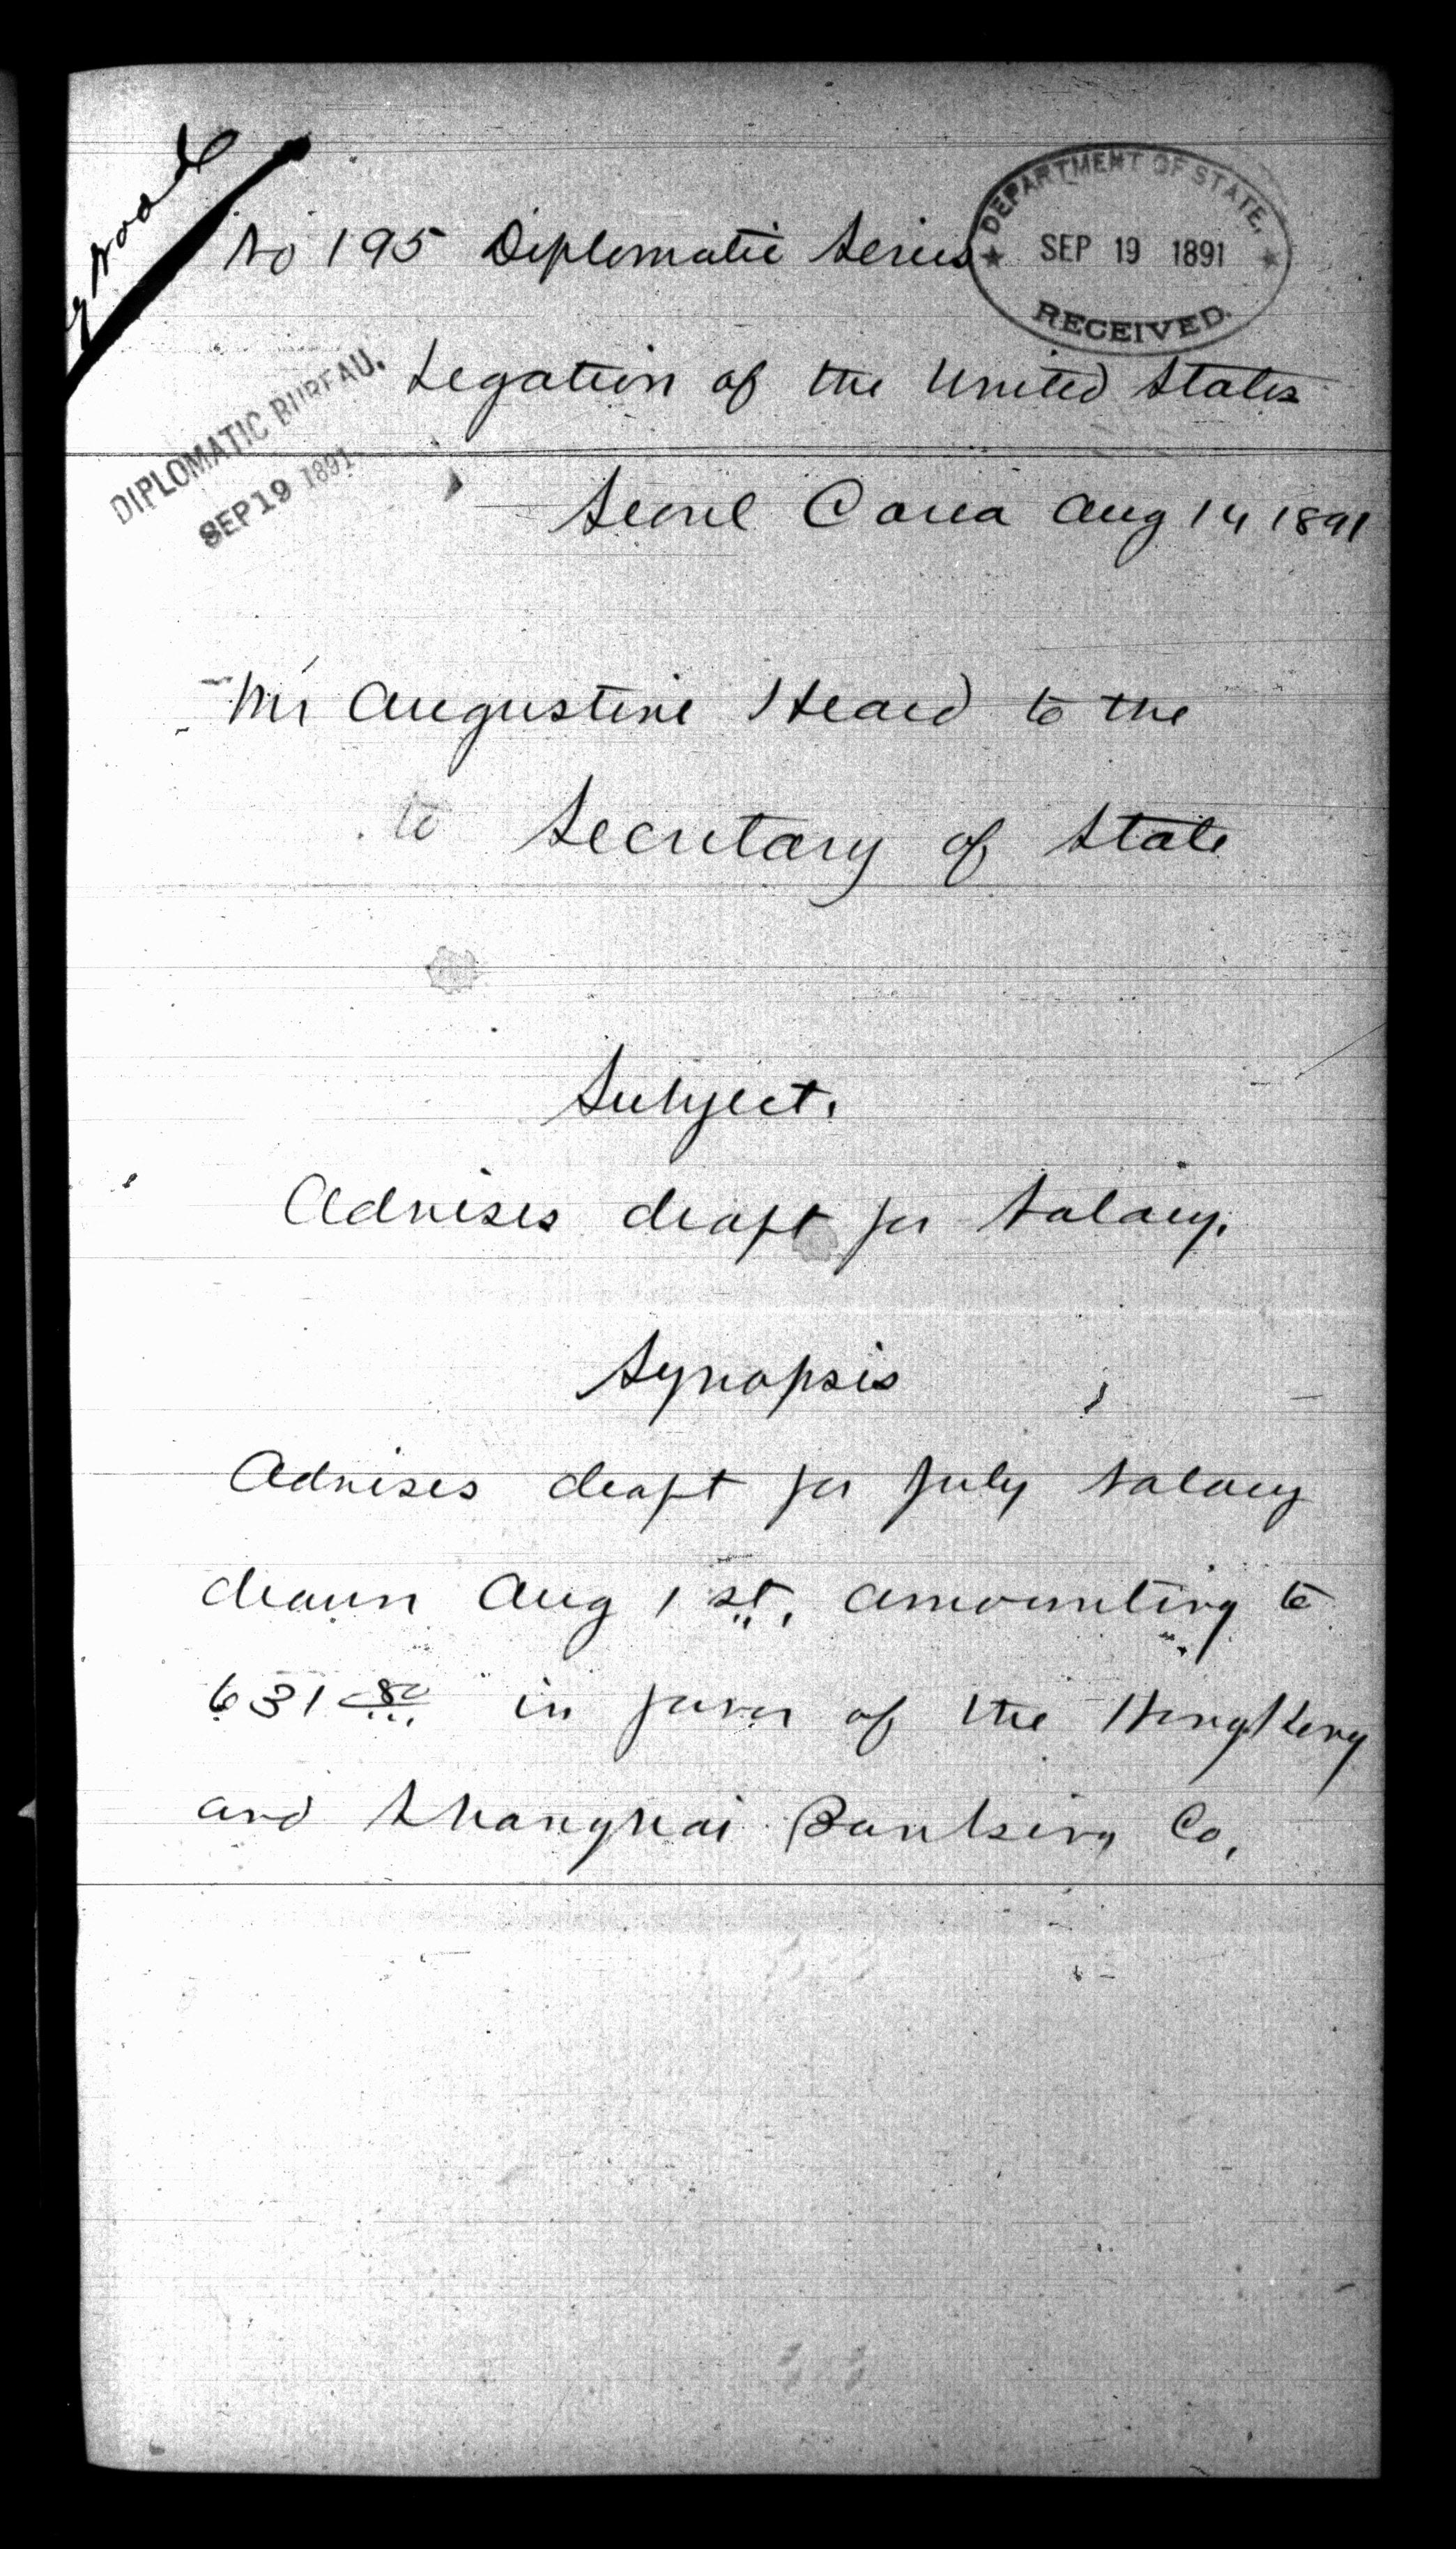 No 195 Diplomatic Series
DEPARTMENT OF STATE.
SEP 19 1891
RECEIVED.
Legation of the United States
DIPLOMATIC BUREAU.
SEP 19 1891
Seoul Corea Aug 14 1891
Mr Augustine Heard to the
to Secretary of State
Subject.
Advises draft for Salary.
Synopsis
Advises draft for July salary
drawn Aug 1st, amounting to
631 80 in favor of the HongKong
and Shanghai Banking Co,